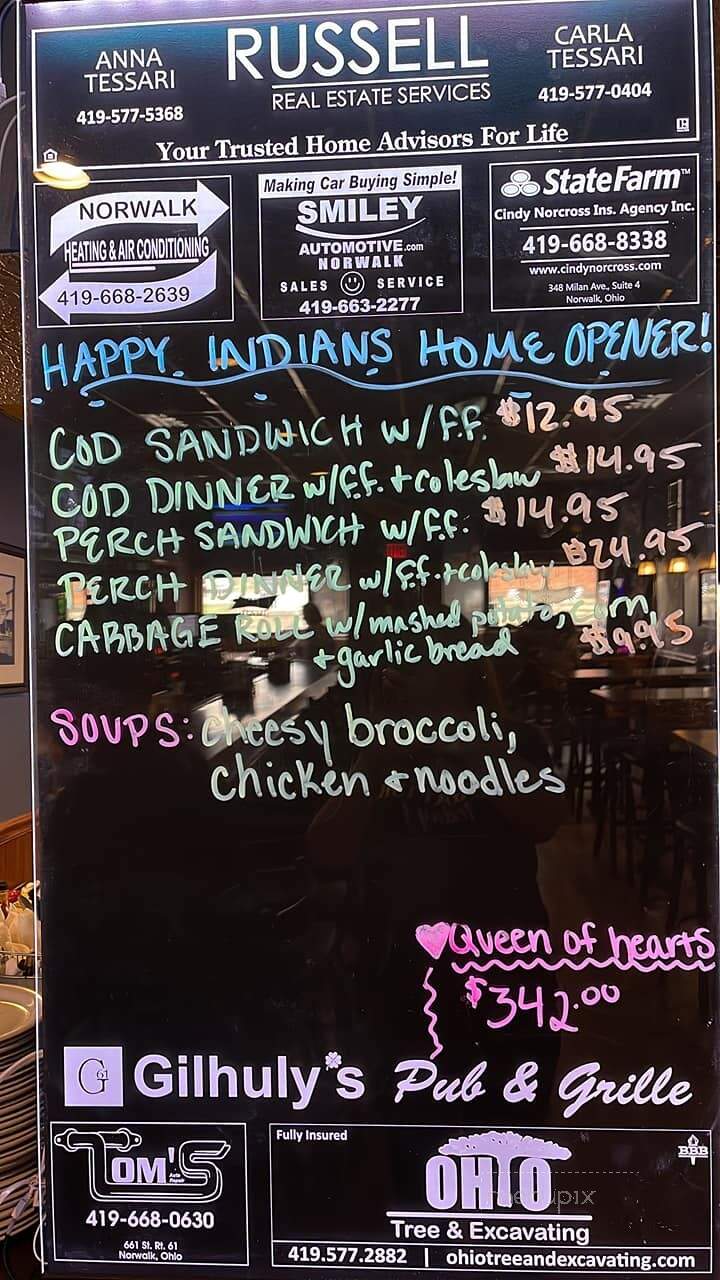 ANNA TESSARI
419-577-5368
RUSSELL
REAL ESTATE SERVICES
CARLA TESSARI
419-577-0404
Your Trusted Home Advisors For Life
NORWALK
HEATING & AIR CONDITIONING
419-668-2639
Making Car Buying Simple!
SMILEY
AUTOMOTIVE.com
NORWALK
SALES SERVICE
419-663-2277
StateFarm™
Cindy Norcross Ins. Agency Inc.
419-668-8338
www.cindynorcross.com
348 Milan Ave., Suite 4
Norwalk, Ohio
HAPPY INDIANS HOME OPENER!
COD SANDWICH w/f.f. $12.95
COD DINNER w/f.f. + coleslaw $14.95
PERCH SANDWICH w/f.f. $14.95
PERCH DINNER w/f.f. + coleslaw $24.95
CABBAGE ROLL w/mashed potato, corn,
+ garlic bread $9.95
SOUPS: cheesy broccoli,
chicken + noodles
Queen of hearts
$342.00
G 61
Gilhuly's Pub & Grille
TOM'S
Auto Repair
419-668-0630
661 St. Rt. 61
Norwalk, Ohio
Fully Insured
BBB
OHIO
Tree & Excavating
419.577.2882 | ohiotreeandexcavating.com